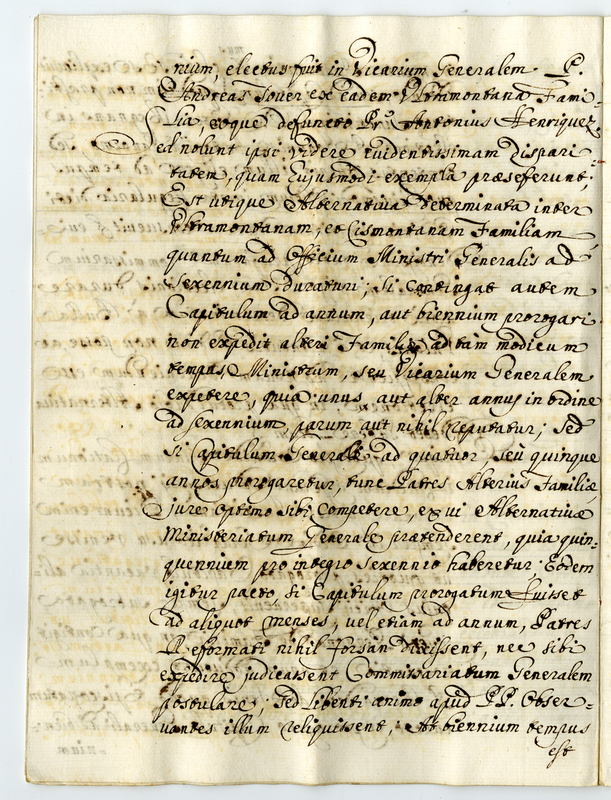 nium, electus fuit in Vicarium Generalem P.
Andreas Souer ex eadem Vltramontana Fami=
lia, eoque defuncto Pr. Antonius Henriquez
Sed nolunt ipsi videre evidentissimam dispari
tatem, quam hujusmodi exempla præseferunt;
Est utique Alternativa determinata inter
Vltramontanam, et Cismontanam Familiam
quantum ad Officium Ministri Generalis ad
sexennium duraturi; si contingat autem
Capitulum ad annum, aut biennium prorogari
non expedit alteri Familiæ ad tam modicum
tempus Ministrum, seu Vicarium Generalem
expetere, quia unus, aut alter annus in ordine
ad sexennium, parum aut nihil reputatur; Sed
si Capitulum Generale ad quatuor, seu quinque
annos prorogaretur, tunc Patres Alterius Familiæ
jure optimo sibi competere, ex vi Alternativæ
Ministeriatum Generale prætenderent, quia quin=
quennium pro integro sexennio haberetur. Eodem
igitur pacto si Capitulum prorogatum fuisset
ad aliquot menses, vel etiam ad annum, Patres
Reformati nihil forsan dixissent, nec sibi
expedire judicassent Commissariatum Generalem
postulare; sed libenti animo apud PP. Obser=
vantes illum reliquissent; At biennium tempus
est